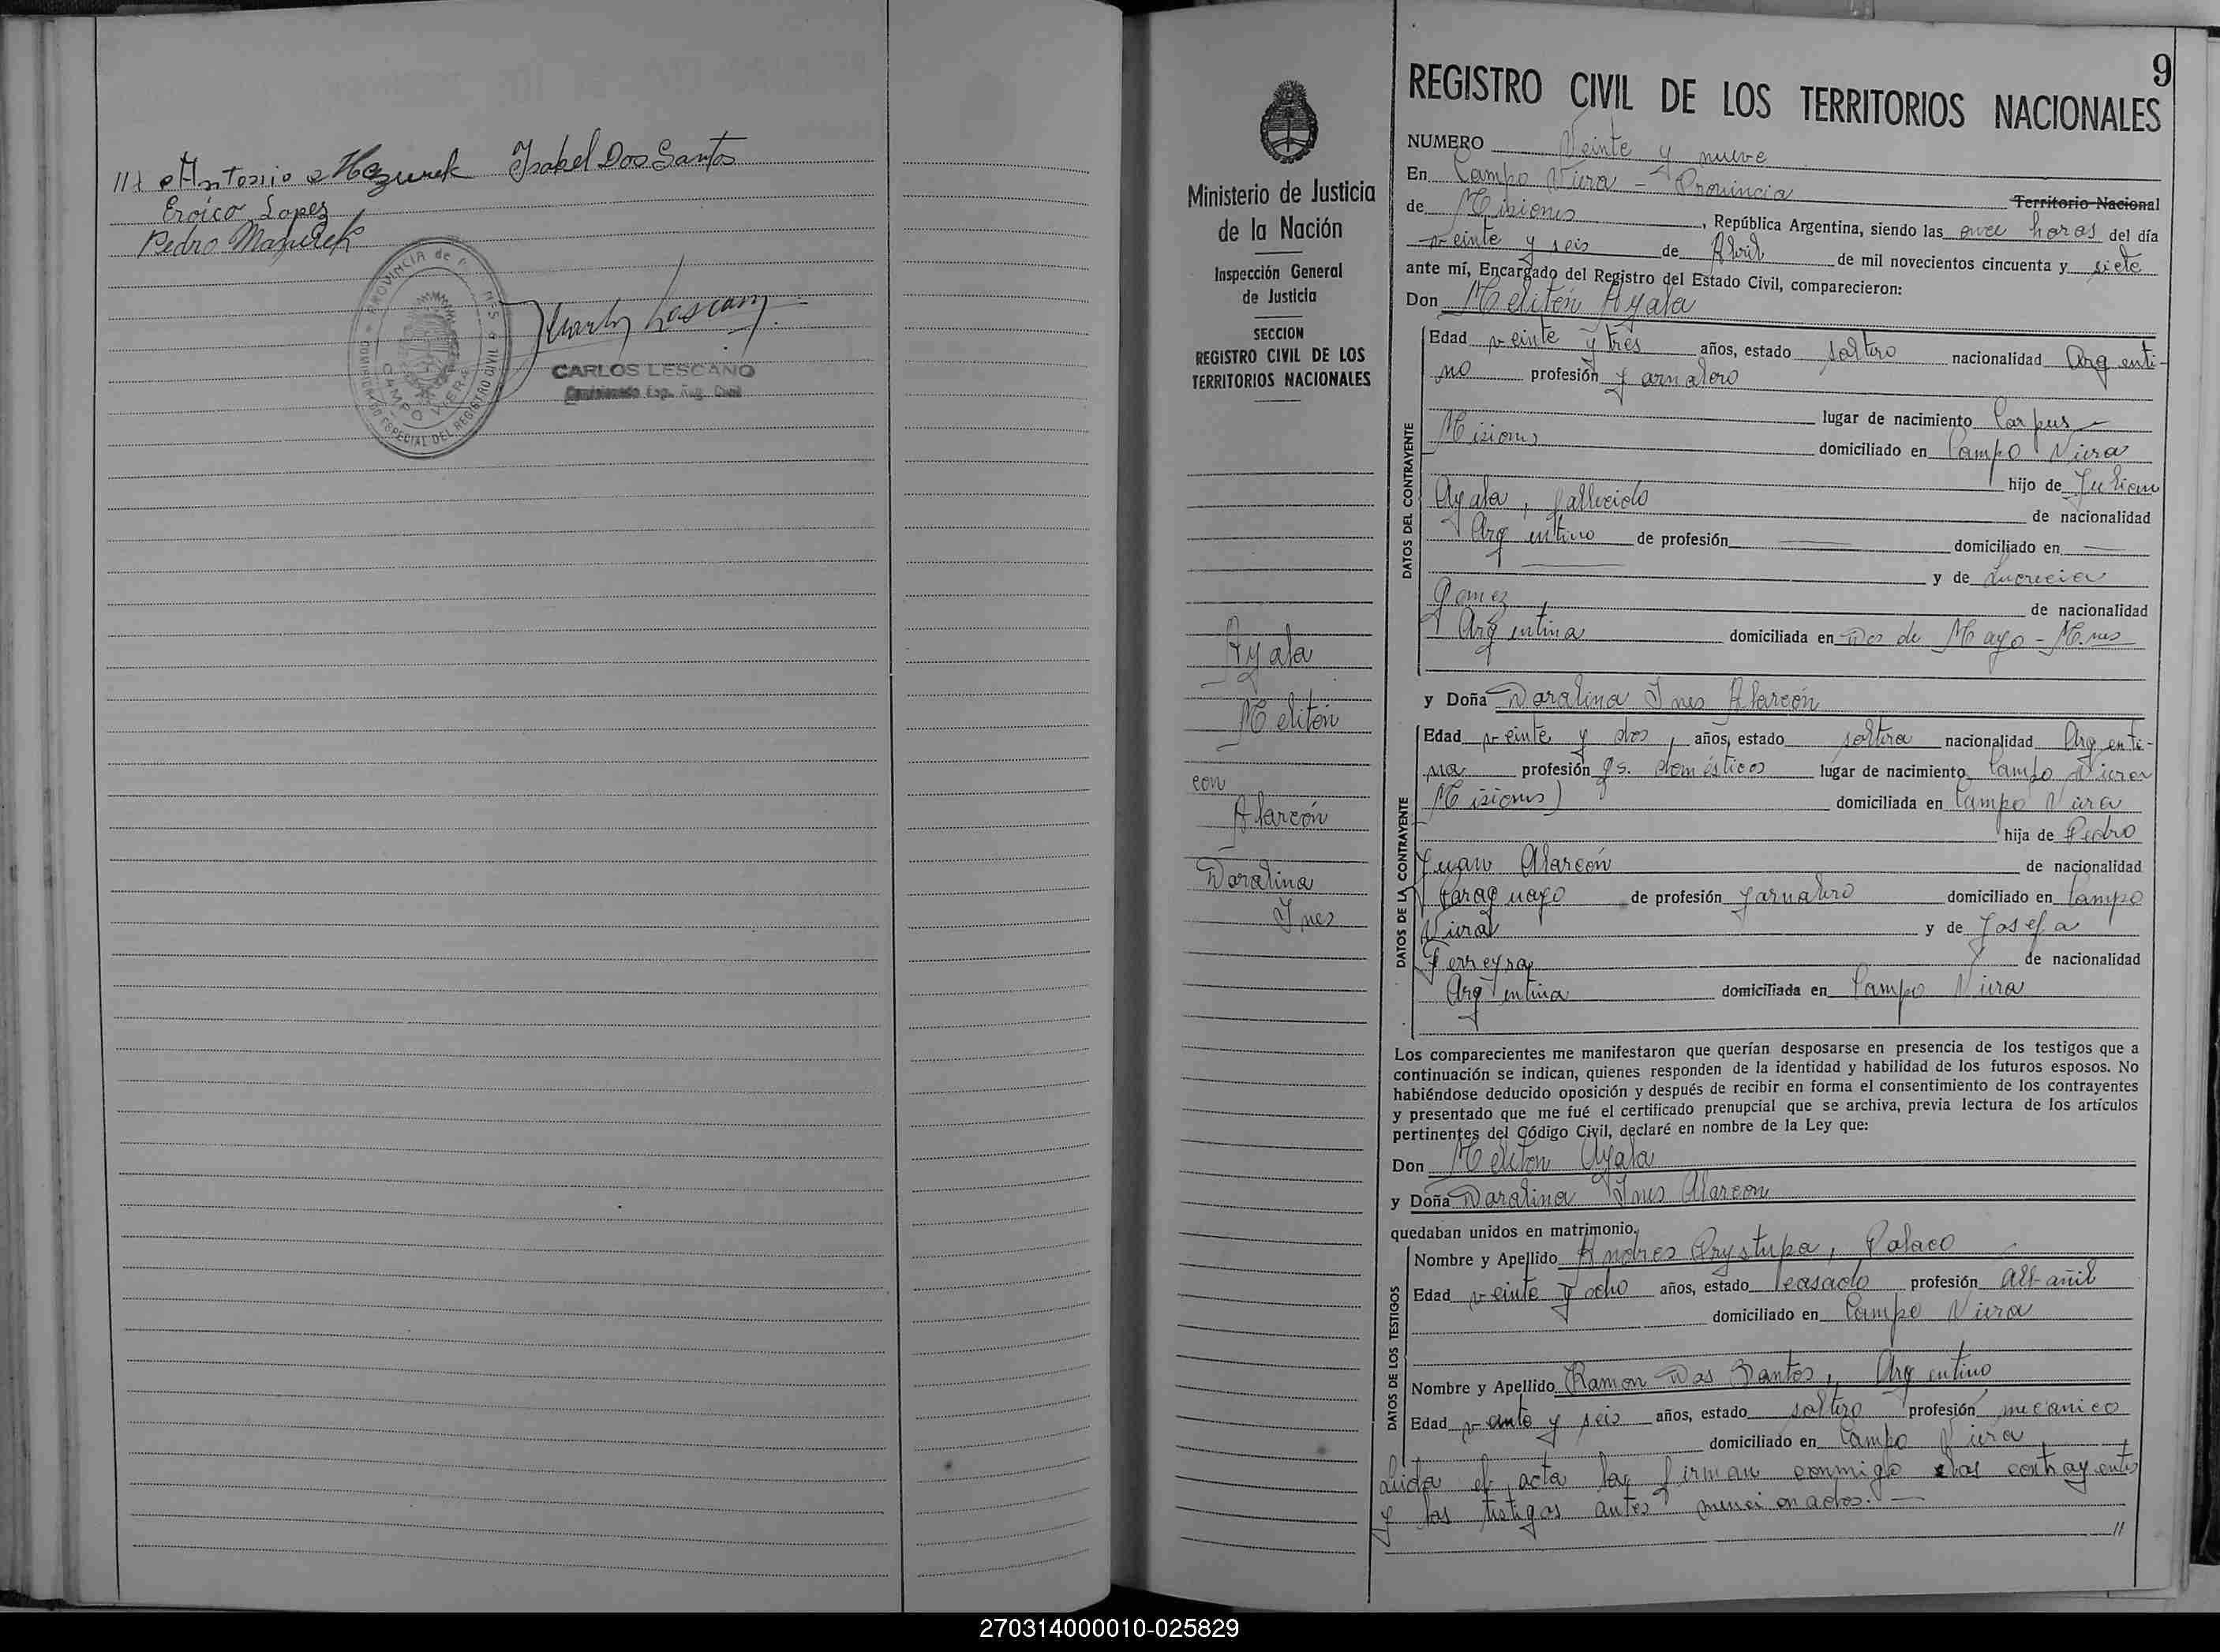 Antonio Mazurek Isabel Dos Santos
Eroico Lopez
Pedro
PROVINCIA de
CAMPO VIERA
ESPECIAL DEL REGISTRO CIVIL
CARLOS LESCANO
Esp. Reg. Civil
9
Ministerio de Justicia
de la Nación
Inspección General
de Justicia
SECCION
REGISTRO CIVIL DE LOS
TERRITORIOS NACIONALES
Ayala
Melitón
con
Alarcón
Doralina
Ines
REGISTRO CIVIL DE LOS TERRITORIOS NACIONALES
NUMERO Veinte y nueve
En Campo Viera - Provincia Territorio Nacional
de Misiones, República Argentina, siendo las once horas del día
veinte y seis de Abril de mil novecientos cincuenta y siete
ante mí, Encargado del Registro del Estado Civil, comparecieron:
Don Melitón Ayala
DATOS DEL CONTRAYENTE
Edad veinte y tres años, estado soltero nacionalidad Argenti-
no profesión jornalero
lugar de nacimiento Corpus -
Misiones domiciliado en Campo Viera
hijo de Julian
Ayala, fallecido de nacionalidad
Argentino de profesión domiciliado en
y de Lucrecia
Gomez de nacionalidad
Argentina domiciliada en Dos de Mayo - M.nes
y Doña Doralina Ines Alarcón
DATOS DE LA CONTRAYENTE
Edad veinte y dos, años, estado soltera nacionalidad Argenti-
na profesión qs. domésticos lugar de nacimiento Campo Viera
Misiones) domiciliada en Campo Viera
hija de Pedro
Juan Alarcón de nacionalidad
Paraguayo de profesión jornalero domiciliado en Campo
Viera y de Josefa
Ferreyra de nacionalidad
Argentina domiciliada en Campo Viera
Los comparecientes me manifestaron que querían desposarse en presencia de los testigos que a
continuación se indican, quienes responden de la identidad y habilidad de los futuros esposos. No
habiéndose deducido oposición y después de recibir en forma el consentimiento de los contrayentes
y presentado que me fué el certificado prenupcial que se archiva, previa lectura de los artículos
pertinentes del Código Civil, declaré en nombre de la Ley que:
Don Meliton Ayala
y Doña Doralina Ines Alarcon
quedaban unidos en matrimonio.
DATOS DE LOS TESTIGOS
Nombre y Apellido Andres Prystupa, Polaco
Edad veinte y ocho años, estado casado profesión albañil
domiciliado en Campo Viera
Nombre y Apellido Ramon Dos Santos, Argentino
Edad veinte y seis años, estado soltero profesión mecanico
domiciliado en Campo Viera
Leida el acta la firman conmigo los contrayentes
y los testigos antes mencionados. -
//
270314000010-025829